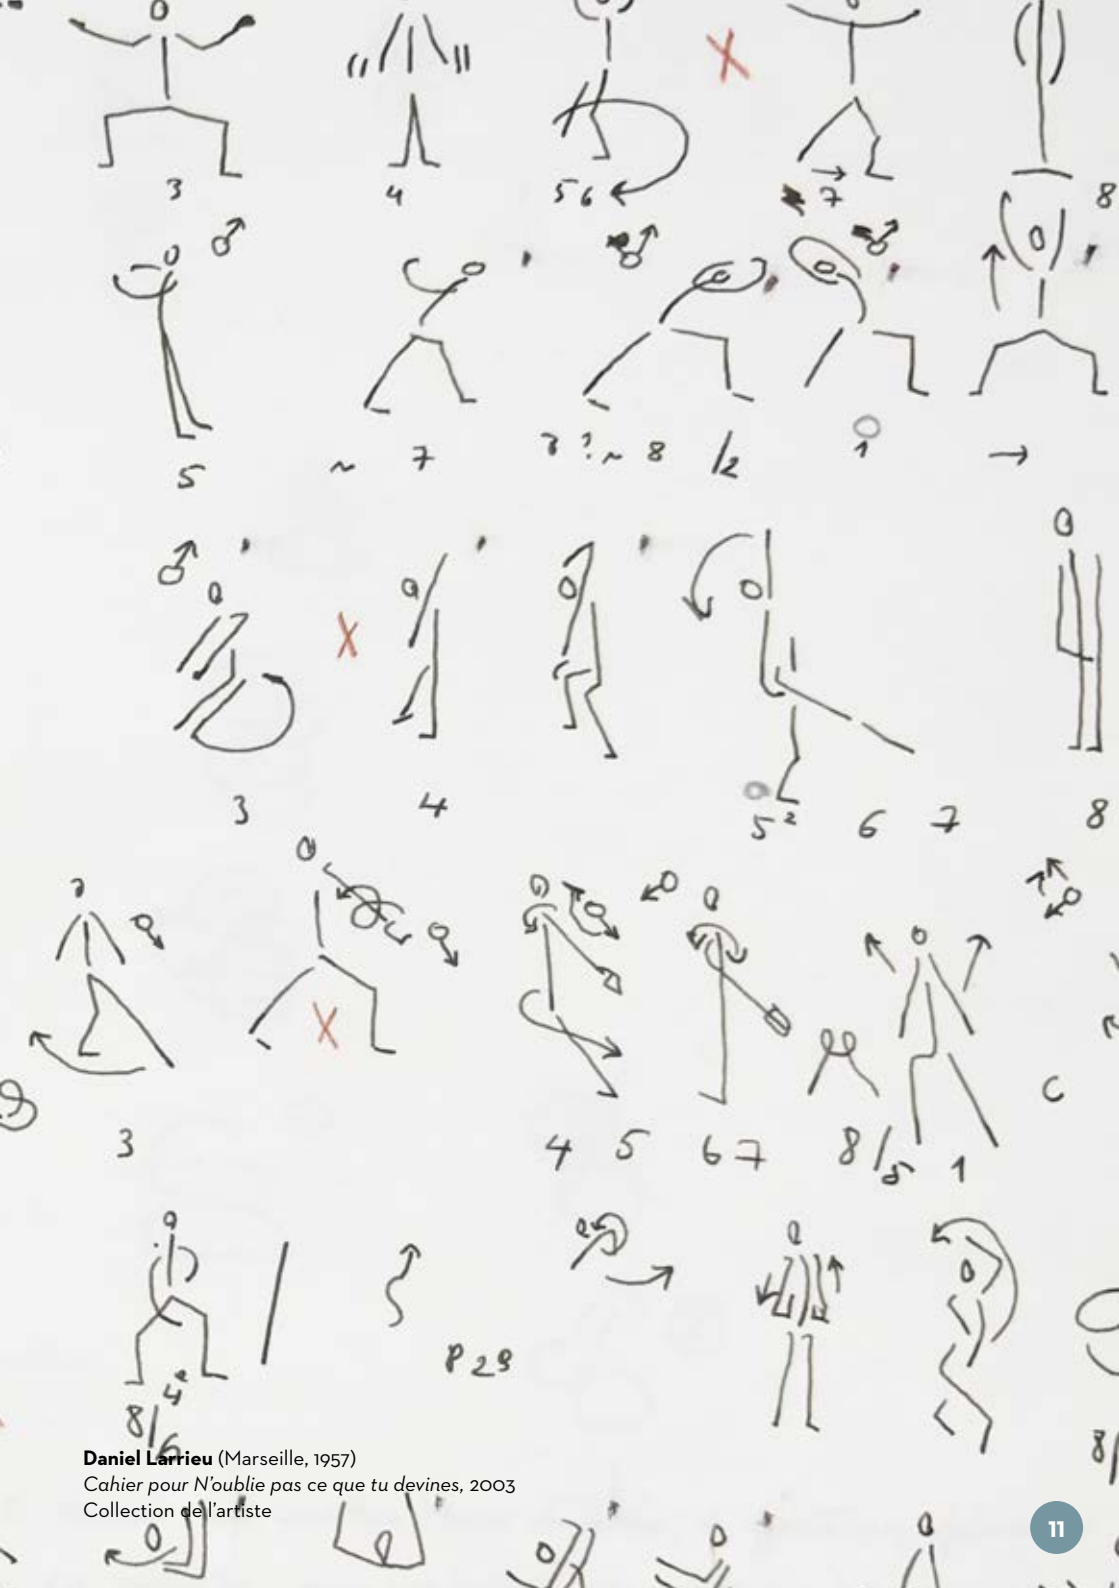 3 4 5 6 7 8
5 ~ 7 ? ~ 8 /2 1 →
3 4 5² 6 7 8
3 4 5 6 7 8/5 1 C
P 29
8/6 4e
8/
Daniel Larrieu (Marseille, 1957)
Cahier pour N'oublie pas ce que tu devines, 2003
Collection de l'artiste
11